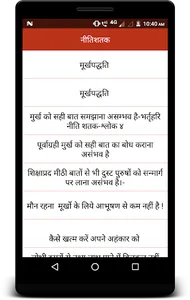 4G 10:40 AM
नीतिशतक
मूर्खपद्धति
मूर्खपद्धति
मुर्ख को सही बात समझाना असम्भव है-भर्तृहरि
नीति शतक-श्लोक ४
पूर्वाग्रही मुर्ख को सही बात का बोध कराना
असंभव है
शिक्षाप्रद मीठी बातों से भी दुष्ट पुरुषों को सन्मार्ग
पर लाना असंभव है।-
मौन रहना मूर्खों के लिये आभूषण से कम नहीं है !
कैसे खत्म करें अपने अहंकार को